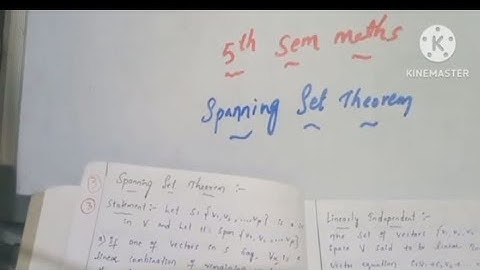 5th Sem maths
KINEMASTER
Spanning Set Theorem
③ Spanning Set Theorem :-
③ Statement:- Let S= {v₁, v₂, ....vₚ} is a
in V and Let H= Span {v₁, v₂, ...., vₚ}
a) If one of vectors in S
linear combination of remaining
Linearly Independent :-
The Set of vectors {v₁, v₂,
Space V Said to be linear
vector equation